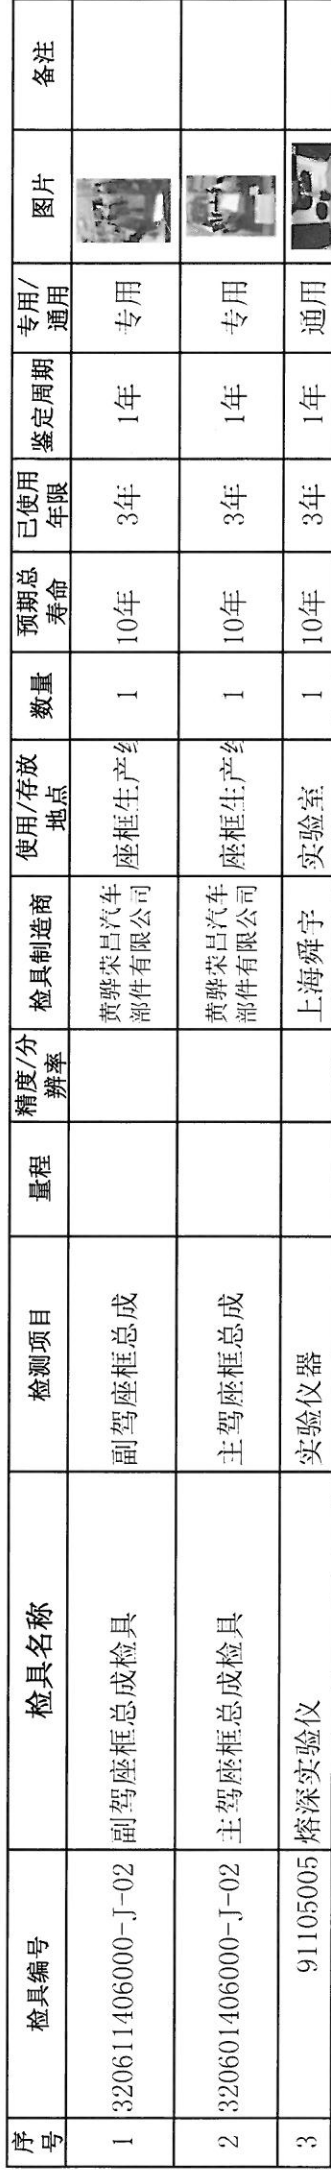 序号 检具编号 检具名称 检测项目 量程 精度/分辨率 检具制造商 使用/存放地点 数量 预期总寿命 已使用年限 鉴定周期 专用/通用 图片 备注
1 320611406000-J-02 副驾座框总成检具 副驾座框总成 黄骅荣昌汽车部件有限公司 座框生产 1 10年 3年 1年 专用
2 320601406000-J-02 主驾座框总成检具 主驾座框总成 黄骅荣昌汽车部件有限公司 座框生产 1 10年 3年 1年 专用
3 91105005 熔深实验仪 实验仪器 上海舜宇 实验室 1 10年 3年 1年 通用